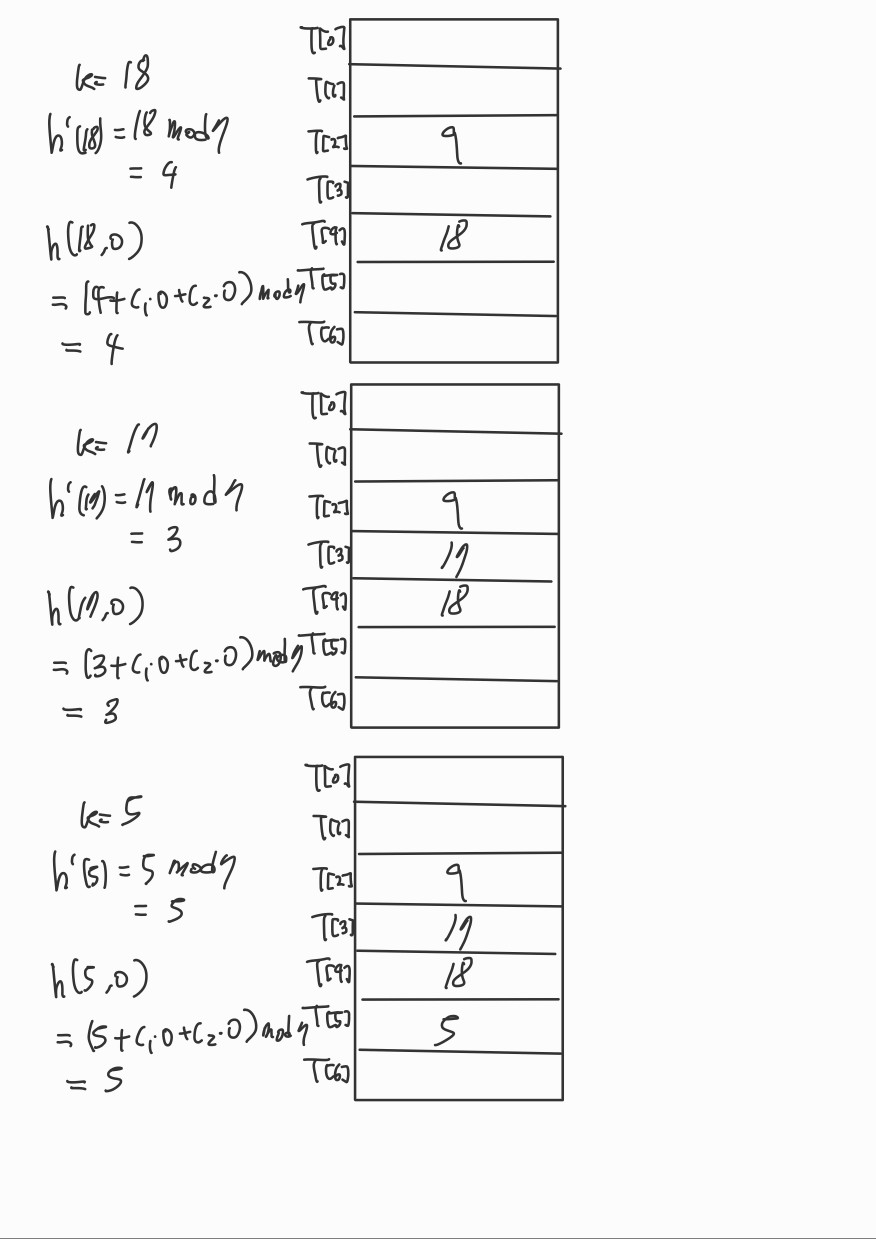 k= 18
h'(18) = 18 mod 7
= 4
h(18,0)
= (4+c₁·0+c₂·0) mod 7
= 4
T[0]
T[1]
T[2] 9
T[3]
T[4] 18
T[5]
T[6]
k= 17
h'(17) = 17 mod 7
= 3
h(17,0)
= (3+c₁·0+c₂·0) mod 7
= 3
T[0]
T[1]
T[2] 9
T[3] 17
T[4] 18
T[5]
T[6]
k= 5
h'(5) = 5 mod 7
= 5
h(5,0)
= (5+c₁·0+c₂·0) mod 7
= 5
T[0]
T[1]
T[2] 9
T[3] 17
T[4] 18
T[5] 5
T[6]